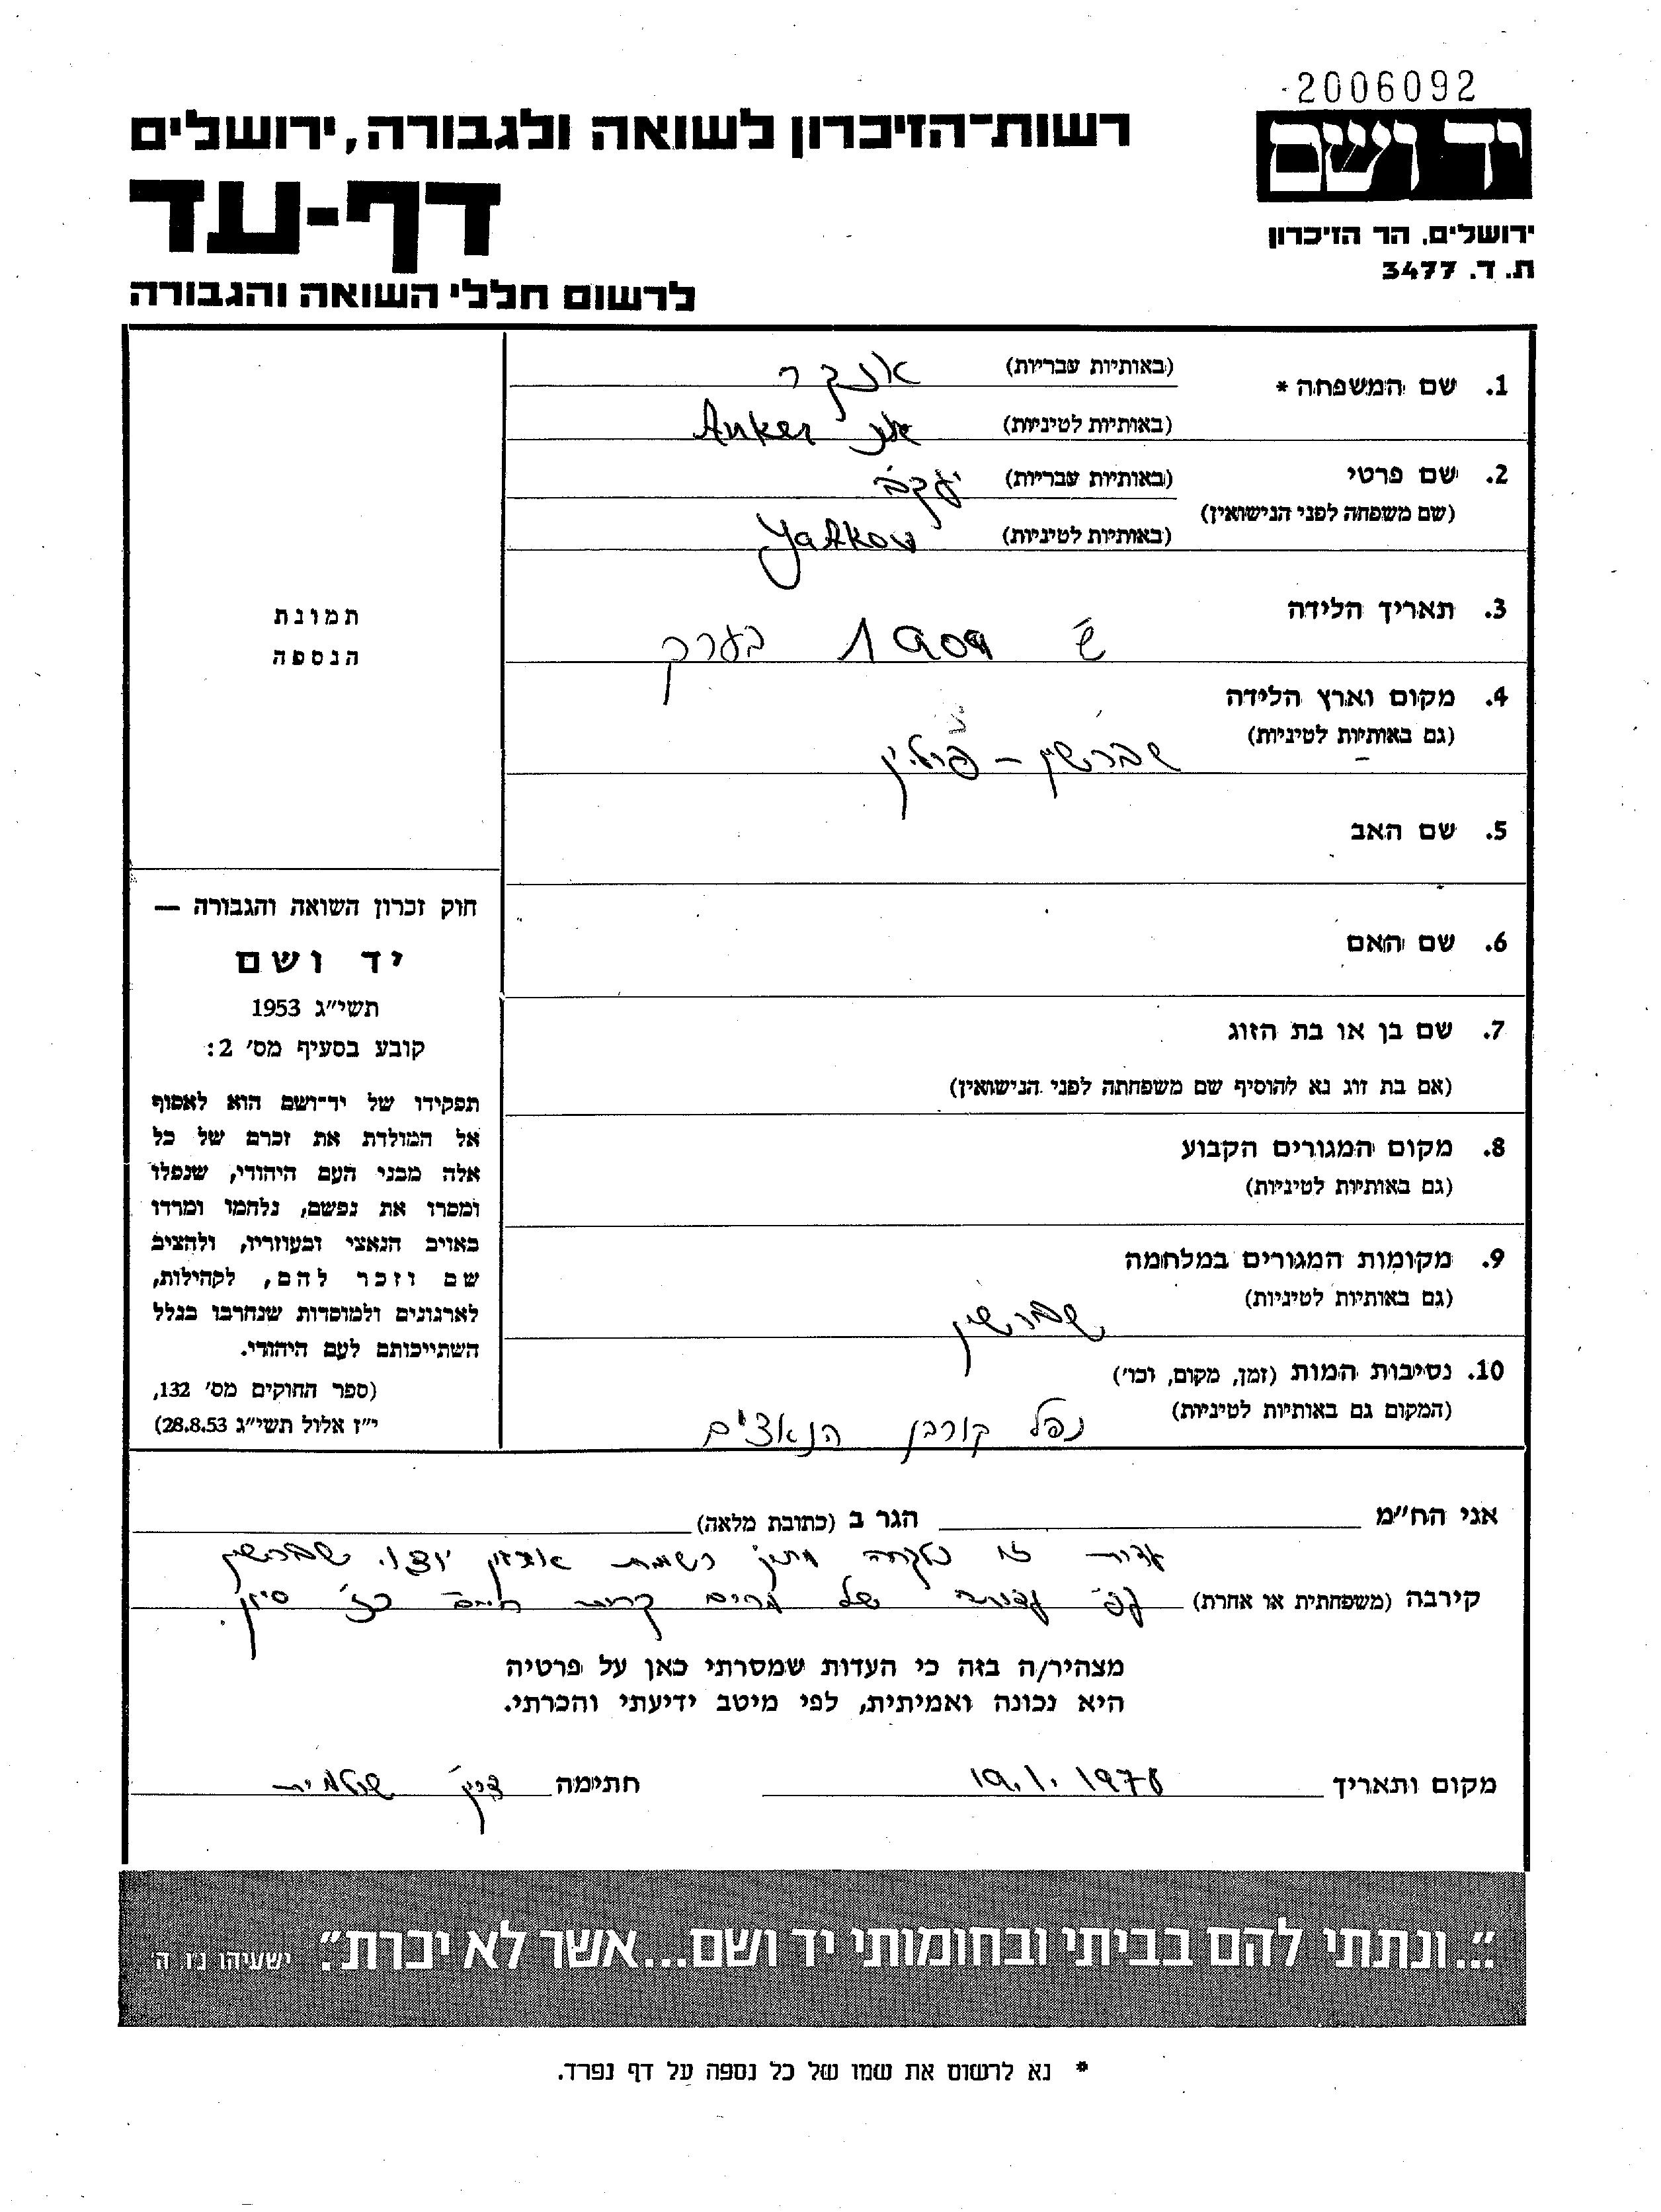 2006092
יד ושם
ירושלים, הר הזיכרון
ת. ד. 3477
רשות־הזיכרון לשואה ולגבורה, ירושלים
דף-עד
לרשום חללי השואה והגבורה
1. שם המשפחה * (באותיות עבריות) אנקר
(באותיות לטיניות) Anker
2. שם פרטי (באותיות עבריות) יעקב
(שם משפחה לפני הנישואין) (באותיות לטיניות) Yaakov
3. תאריך הלידה 1909 בערך
4. מקום וארץ הלידה
(גם באותיות לטיניות) שברשין – פולין
5. שם האב
6. שם האם
7. שם בן או בת הזוג
(אם בת זוג נא להוסיף שם משפחתה לפני הנישואין)
8. מקום המגורים הקבוע
(גם באותיות לטיניות)
9. מקומות המגורים במלחמה
(גם באותיות לטיניות) שברשין
10. נסיבות המות (זמן, מקום, וכו')
(המקום גם באותיות לטיניות) נפל קורבן הנאצים
תמונת
הנספה
חוק זכרון השואה והגבורה —
יד ושם
תשי"ג 1953
קובע בסעיף מס' 2:
תפקידו של יד־ושם הוא לאסוף
אל המולדת את זכרם של כל
אלה מבני העם היהודי, שנפלו
ומסרו את נפשם, נלחמו ומרדו
באויב הנאצי ובעוזריו, ולהציב
שם וזכר להם, לקהילות,
לארגונים ולמוסדות שנחרבו בגלל
השתייכותם לעם היהודי.
(ספר החוקים מס' 132,
י"ז אלול תשי"ג 28.8.53)
אני הח"מ הגר ב (כתובת מלאה)
עדות זו נלקחה מתוך רשימת ארגון יוצ. שברשין
קירבה (משפחתית או אחרת) לפי עדותה של מרים קרית חיים
מצהיר/ה בזה כי העדות שמסרתי כאן על פרטיה
היא נכונה ואמיתית, לפי מיטב ידיעתי והכרתי.
מקום ותאריך 19.1.1978 חתימה שולמית
"...ונתתי להם בביתי ובחומותי יד ושם...אשר לא יכרת". ישעיהו נ"ו, ה'
* נא לרשום את שמו של כל נספה על דף נפרד.